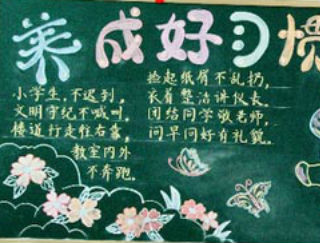 养成好习惯
小学生,不迟到,
文明守纪不喊叫。
楼道行走往右靠,
教室内外
不奔跑。
捡起纸屑不乱扔,
衣着整洁讲仪表。
团结同学敬老师,
问早问好有礼貌。